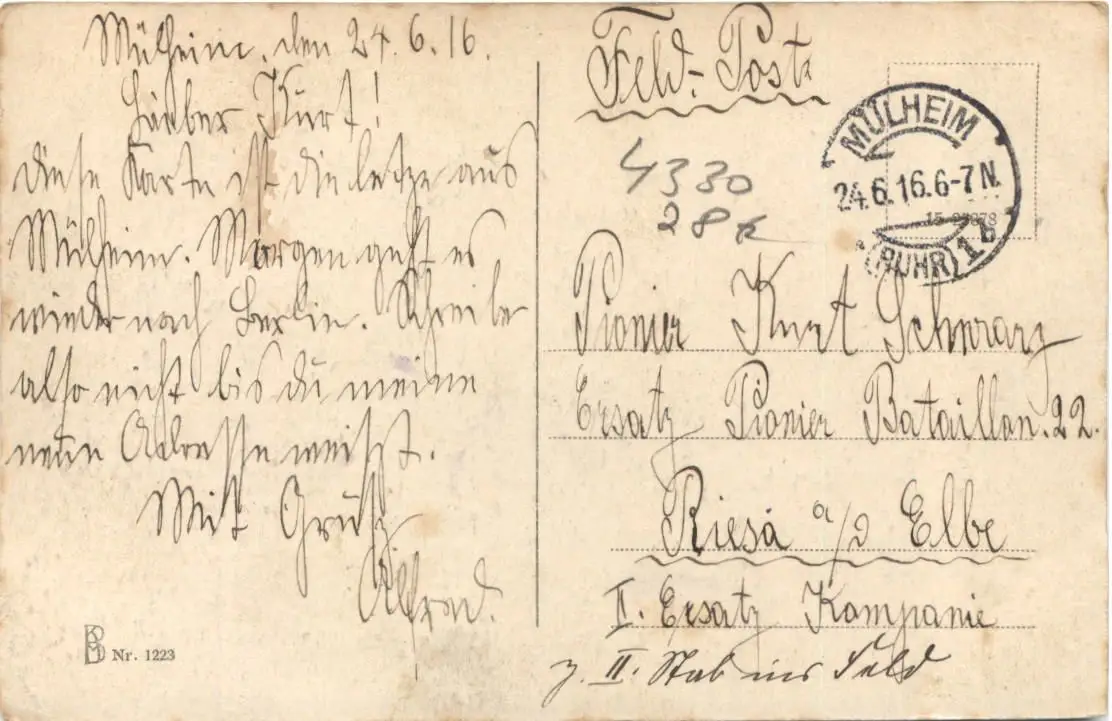 Mülheim, den 24.6.16.
Lieber Kurt!
Diese Karte ist die letze aus
Mülheim. Morgen geht es
wieder nach Berlin. Schreibe
also nicht bis du meine
neue Adresse weißt.
Mit Gruß
Alfred.
BD Nr. 1223
Feld-Post
4330
28k
MÜLHEIM
24.6.16.6-7N.
(RUHR) 1b
Pionier Kurt Schwarz
Ersatz Pionier Bataillon. 22.
Riesa a/d Elbe
II. Ersatz Kompanie
z. II. Stab ins Feld